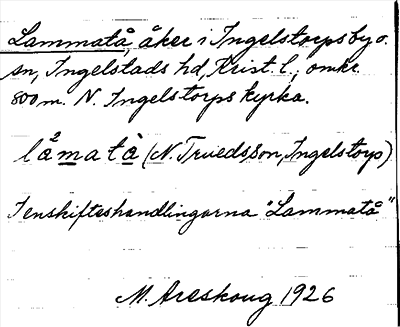 Lammatå, åker i Ingelstorps by o.
sn, Ingelstads hd, Krist. l., omkr.
800 m. N. Ingelstorps kyrka.
lå²matà (N. Truedsson, Ingelstorp)
I enskifteshandlingarna "Lammatå"
M. Areskoug 1926